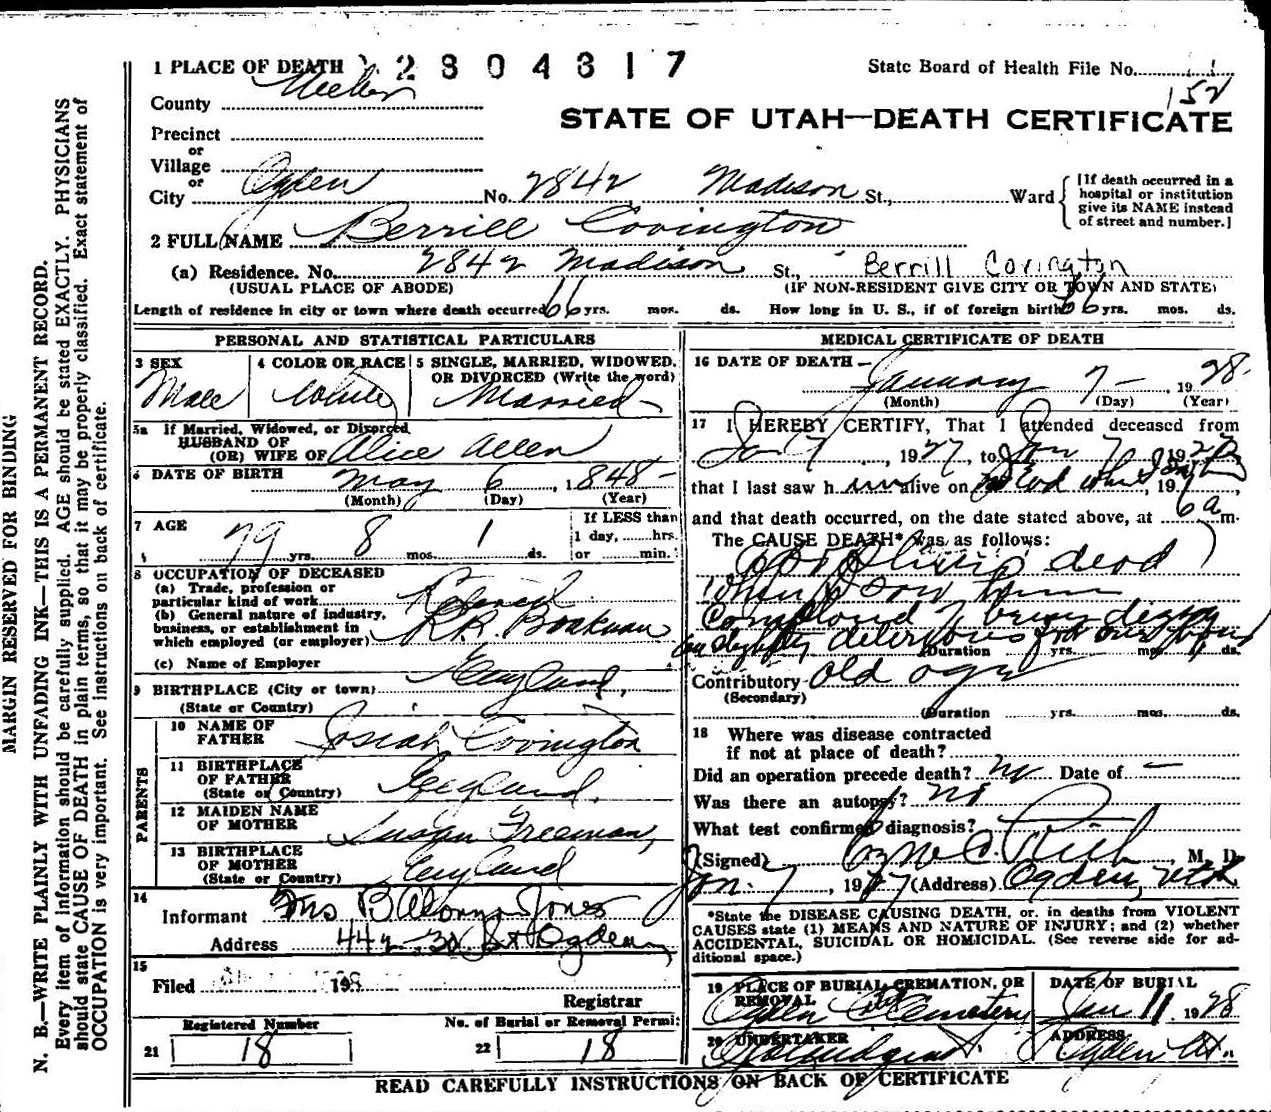 MARGIN RESERVED FOR BINDING
N. B.—WRITE PLAINLY WITH UNFADING INK—THIS IS A PERMANENT RECORD.
Every item of information should be carefully supplied. AGE should be stated EXACTLY. PHYSICIANS
should state CAUSE OF DEATH in plain terms, so that it may be properly classified. Exact statement of
OCCUPATION is very important. See instructions on back of certificate.
1 PLACE OF DEATH
2304317
State Board of Health File No.
152
County Weber
STATE OF UTAH—DEATH CERTIFICATE
Precinct
or
Village
or
City Ogden No. 2842 Madison St., Ward
[If death occurred in a
hospital or institution
give its NAME instead
of street and number.]
2 FULL NAME Berrill Covington
(a) Residence. No. 2842 Madison St., Berrill Covington
(USUAL PLACE OF ABODE) (IF NON-RESIDENT GIVE CITY OR TOWN AND STATE)
Length of residence in city or town where death occurred 66 yrs. mos. ds. How long in U. S., if of foreign birth 66 yrs. mos. ds.
PERSONAL AND STATISTICAL PARTICULARS
3 SEX Male
4 COLOR OR RACE White
5 SINGLE, MARRIED, WIDOWED, OR DIVORCED (Write the word) Married
5a If Married, Widowed, or Divorced
HUSBAND OF
(OR) WIFE OF Alice Allen
6 DATE OF BIRTH May 6, 1848
(Month) (Day) (Year)
7 AGE 79 yrs. 8 mos. 1 ds.
If LESS than
1 day, hrs.
or min.
8 OCCUPATION OF DECEASED
(a) Trade, profession or
particular kind of work Retired
(b) General nature of industry,
business, or establishment in
which employed (or employer) R.R.
(c) Name of Employer
9 BIRTHPLACE (City or town) England
(State or Country)
PARENTS
10 NAME OF
FATHER Josiah Covington
11 BIRTHPLACE
OF FATHER
(State or Country) England
12 MAIDEN NAME
OF MOTHER Susan Freeman
13 BIRTHPLACE
OF MOTHER
(State or Country) England
14
Informant Mrs B Jones
Address 442-30 St Ogden
15
Filed 192
Registrar
Registered Number
21 18
No. of Burial or Removal Permit
22 18
MEDICAL CERTIFICATE OF DEATH
16 DATE OF DEATH—
January 7 - 1928
(Month) (Day) (Year)
17 I HEREBY CERTIFY, That I attended deceased from
Jan 7, 1927, to Jan 7 192
that I last saw him alive on 19
and that death occurred, on the date stated above, at 6 a m.
The CAUSE DEATH* was as follows:
dead
when I saw him
Complained of being dizzy
Duration yrs. mos. ds.
Contributory old age
(Secondary)
(Duration yrs. mos. ds.
18 Where was disease contracted
if not at place of death?
Did an operation precede death? no Date of —
Was there an autopsy? no
What test confirmed diagnosis?
(Signed) Rich, M. D.
Jan. 7, 1927 (Address) Ogden, Utah
*State the DISEASE CAUSING DEATH, or, in deaths from VIOLENT
CAUSES state (1) MEANS AND NATURE OF INJURY; and (2) whether
ACCIDENTAL, SUICIDAL OR HOMICIDAL. (See reverse side for ad-
ditional space.)
19 PLACE OF BURIAL, CREMATION, OR
REMOVAL
Ogden City Cemetery
DATE OF BURIAL
Jan 11 1928
20 UNDERTAKER
ADDRESS
Ogden Ut.
READ CAREFULLY INSTRUCTIONS ON BACK OF CERTIFICATE